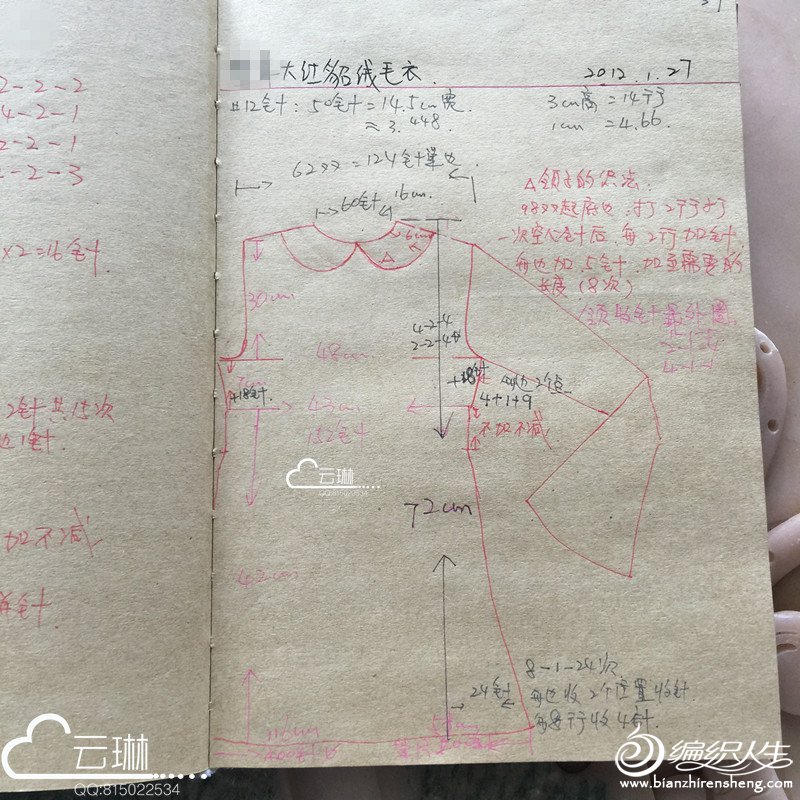 2-2-2
4-2-1
2-2-1
2-2-3
×2=16针
2针共15次
边1针.
加不减
大红貂绒毛衣.
2012.1.27
#12针: 50针=14.5cm宽
≈3.448.
3cm高=14行
1cm=4.66.
62××=124针
60针
16cm
6cm
△
△领子的织法:
98××起底边,打2行
一次空心针后,每2行加针,
每边加.5针.加至需要的
长度(8次)
领收针最外圈.
4-1-1
30cm
4-2-4
2-2-4
48cm
7cm
+18针
+18针
每边2个点
4+1+9
不加不减
152针
云琳
72cm
42cm
8-1-24次
每边收2个位置收针
每8行收4针.
24针
116cm
云琳
QQ:815022534
编织人生
www.bianzhirensheng.com